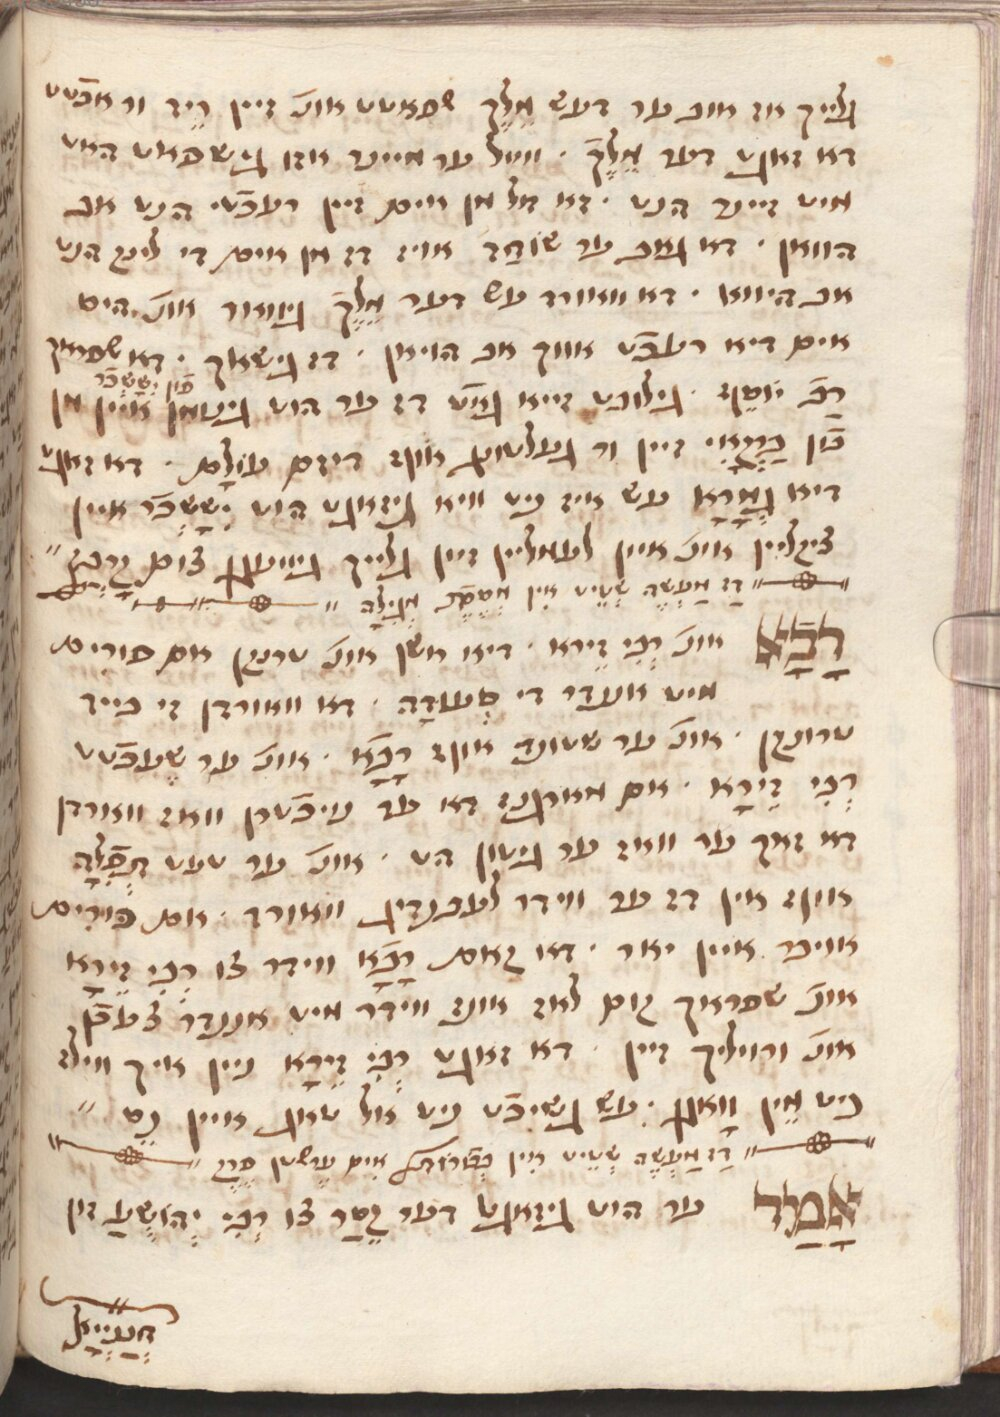 גלייך אז אוב ער דעש מֶלֶךְ שפאטט אונ' זיין רֵיד ור אכֿטט
דא זאגט דער מֶלֶךְ · ווייל ער איינר אזו גישפאט האט
מיט זיינר הנט · זא זל מן אים זיין רעכֿטי הנט אב
הוואן · דא גאב ער שׁוֹחַד אויז דז מן אים די לינק הנט
אב היווא · דא ווארד עש דער מֶלֶךְ גיוואר אונ' היס
אים דיא רעכֿט אווך אב הויאן · דז גישאך · דא שפראך
רַב יוֹסֵף · גילובט זייא גאט דז ער הוט גיטאן אויין מן
פֿון יִשָשכָר
פֿון בַּרְקַאי זיין ור געלטונג אויף דיזם עוֹלָם · דא זאגט
דיא גְמָרָא עש איז ניט וויא גיזאגט הוט יִשָׂשכָר איין
ציקליין אונ' איין לעמליין זיין גלייך גיוועגן צום קָרְבָּן "
דַז מַעֲשֶׂה שְׁטֵיט אין מַסֶכֶת מְגִילָה "
רַבָּא אונ' רְבִי זֵירא · דיא אשן אונ' טרונקן אם פורים
מיט אנעדר די סְעוּדָה · דא ווארדן זי בייד
טרונקן · אונ' ער שטונד אויף רַבָּא · אונ' ער שֶׁעכֿטט
רְבִי זֵירָא · אם מארגנז דא ער ניכֿטרן וואז ווארדן
דא זאך ער וואז ער גיטון הט · אונ' ער טעט תְּפִלָה
אויף אין דז ער ווידר לעבנדיג ווארד · אם פּוּרִים
אויבר איין יאר · דא קאם רַבָּא ווידר צו רְבִי זֵירָא
אונ' שפראך קום לאז אונז ווידר מיט אננדר צעכֿן
אונ' ורויליך זיין · דא זאגט רְבִי זֵירָא ניין איך ווילז
ניט מֵין וָואגן · עש גשיכֿט ניט אל טאג איין נֵס "
דַז מַעֲשֶׂה שְׁטֵיט אין אים ערשטן פֶּרֶק "
אָמַר ער הוט גיזאגט דער קֵסַר צו רְבִי יְהוֹשֻׁעַ זון
חֲנַנְיָיא